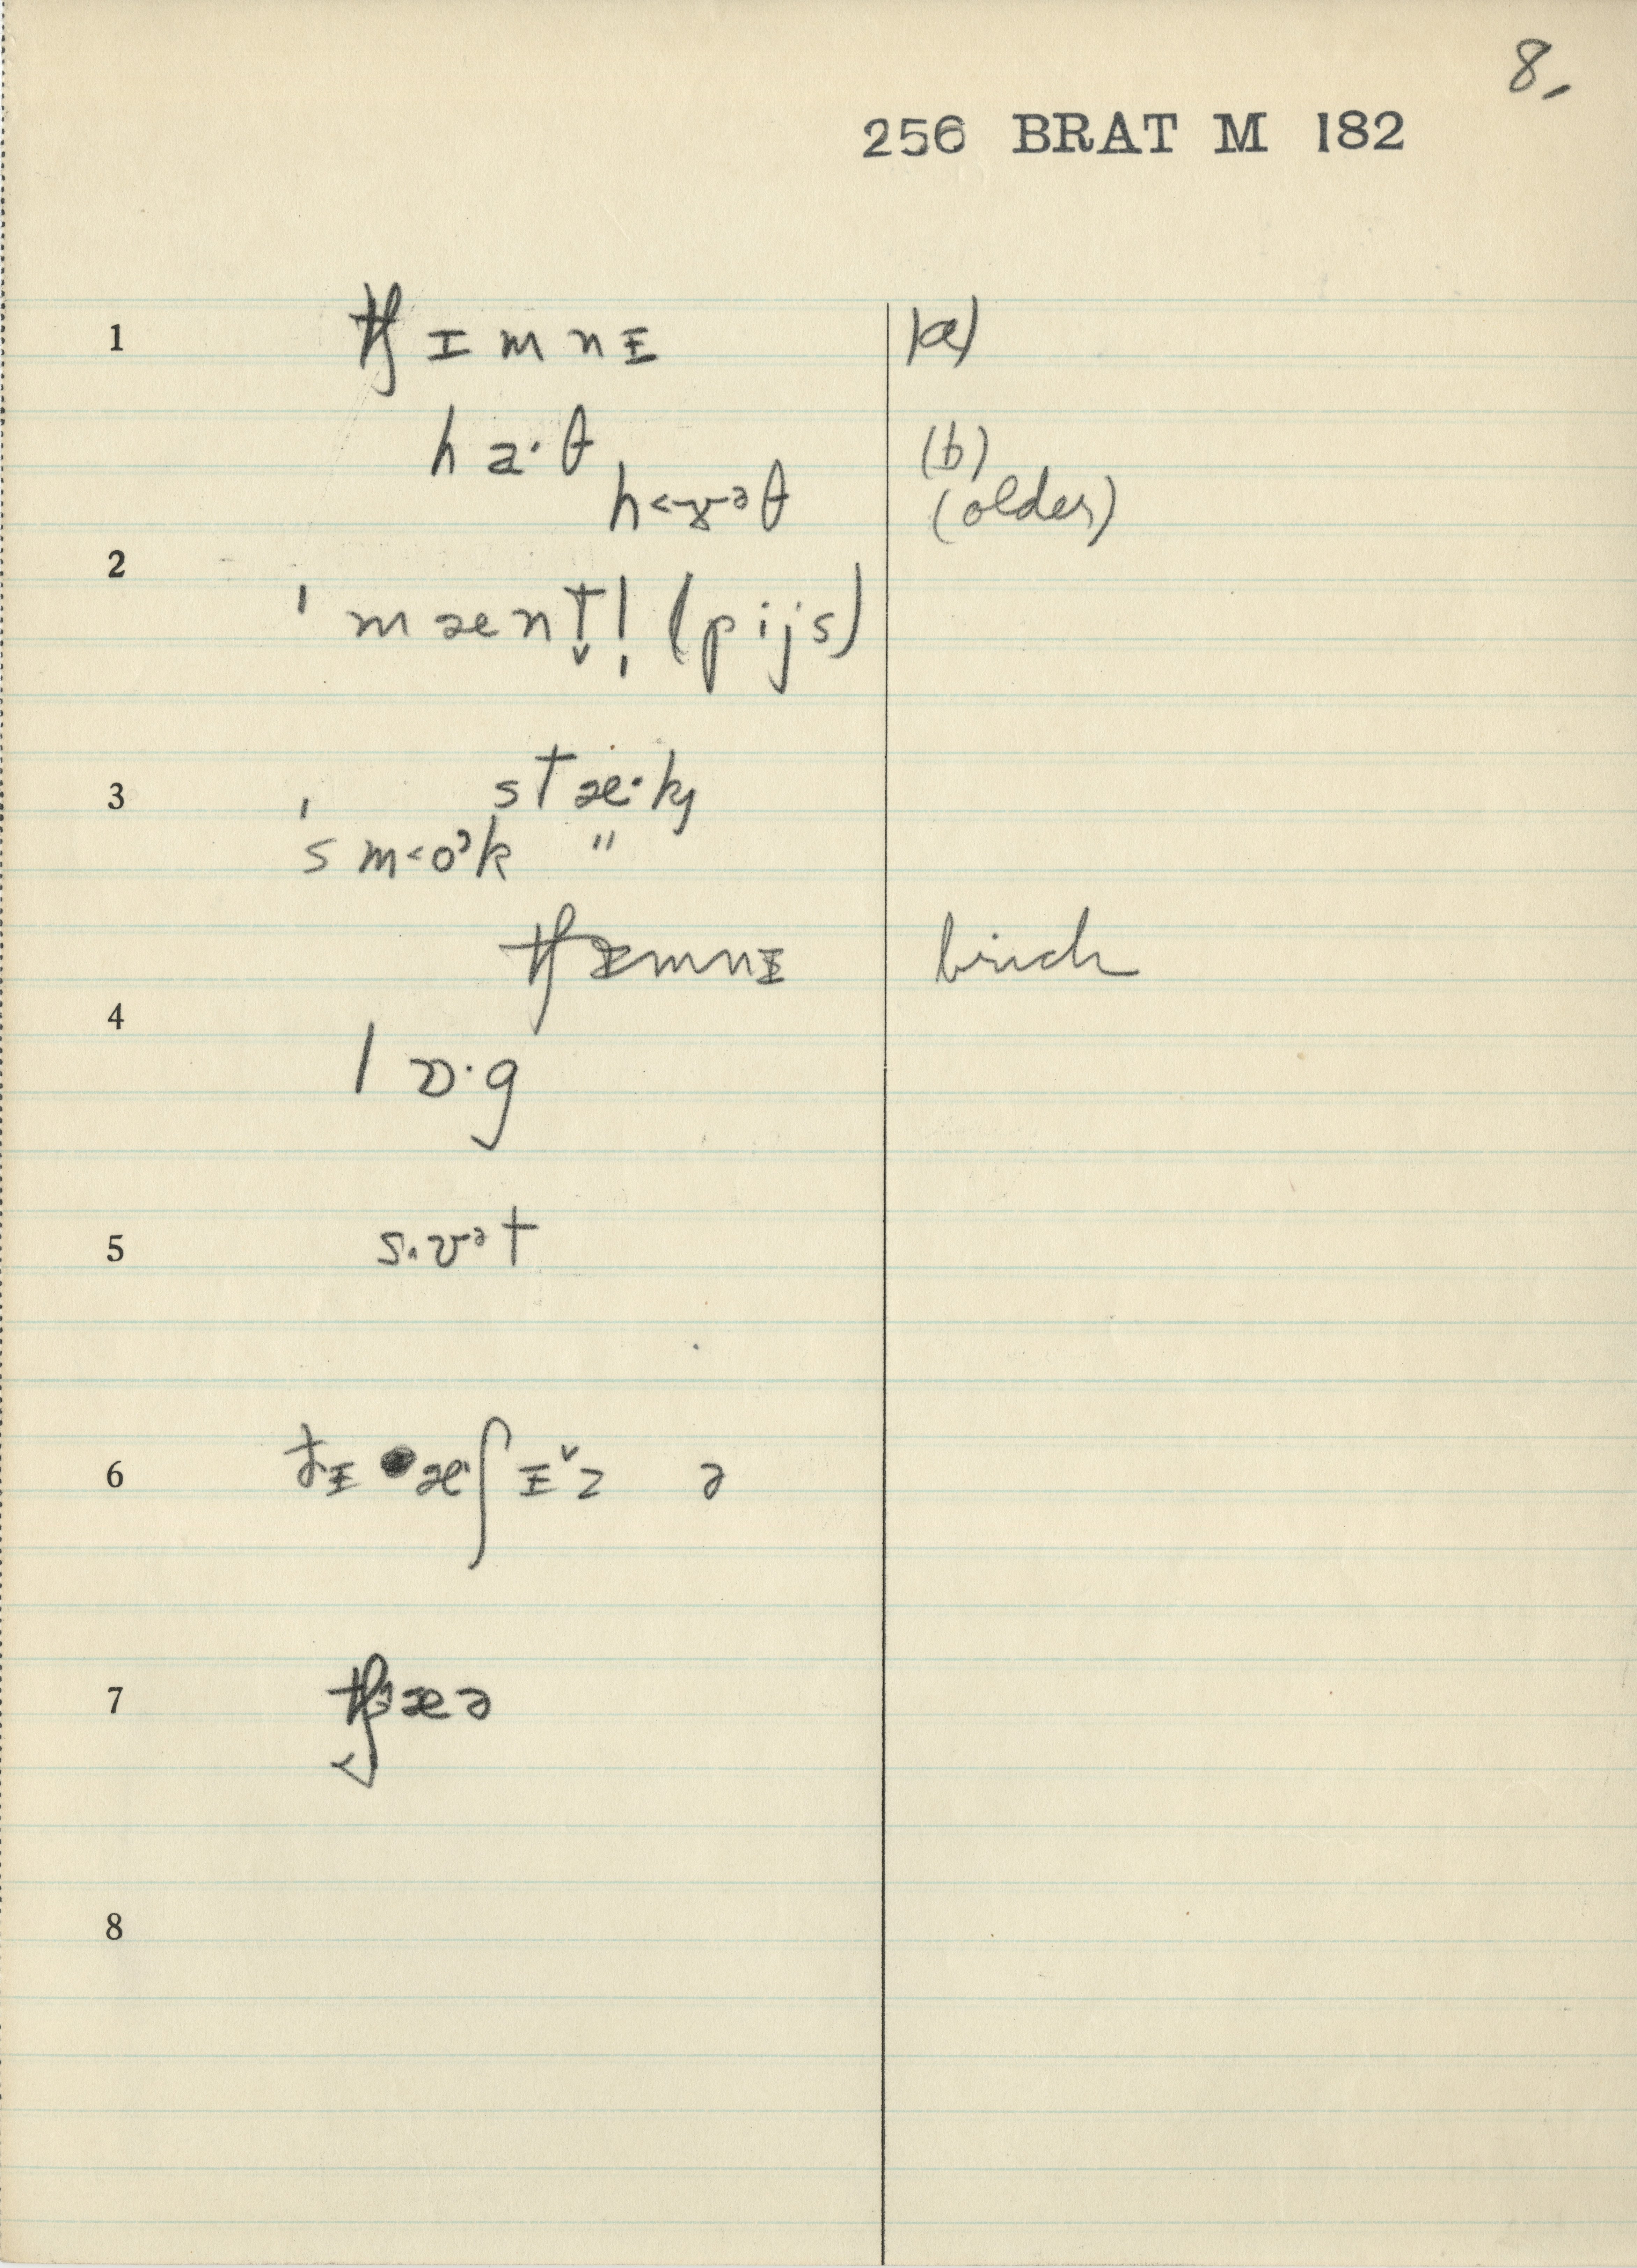 8,
256 BRAT M 182
1 tʃ ɪ m n ɨ (a)
h a· θ (b)
h <ɤ ᵊ θ (older)
2
ˈ m æ n t̬ l̩ (p i j s)
3 ˈ s t æ· k
ˈs m <o ᵊ k "
tʃ ɪ m n ɨ brick
4
l ɒ· g
5 s ʌ. ʊ ᵊ t
6 ð ɨ æ ʃ ɨ z ə
7 tʃ æ ə
8